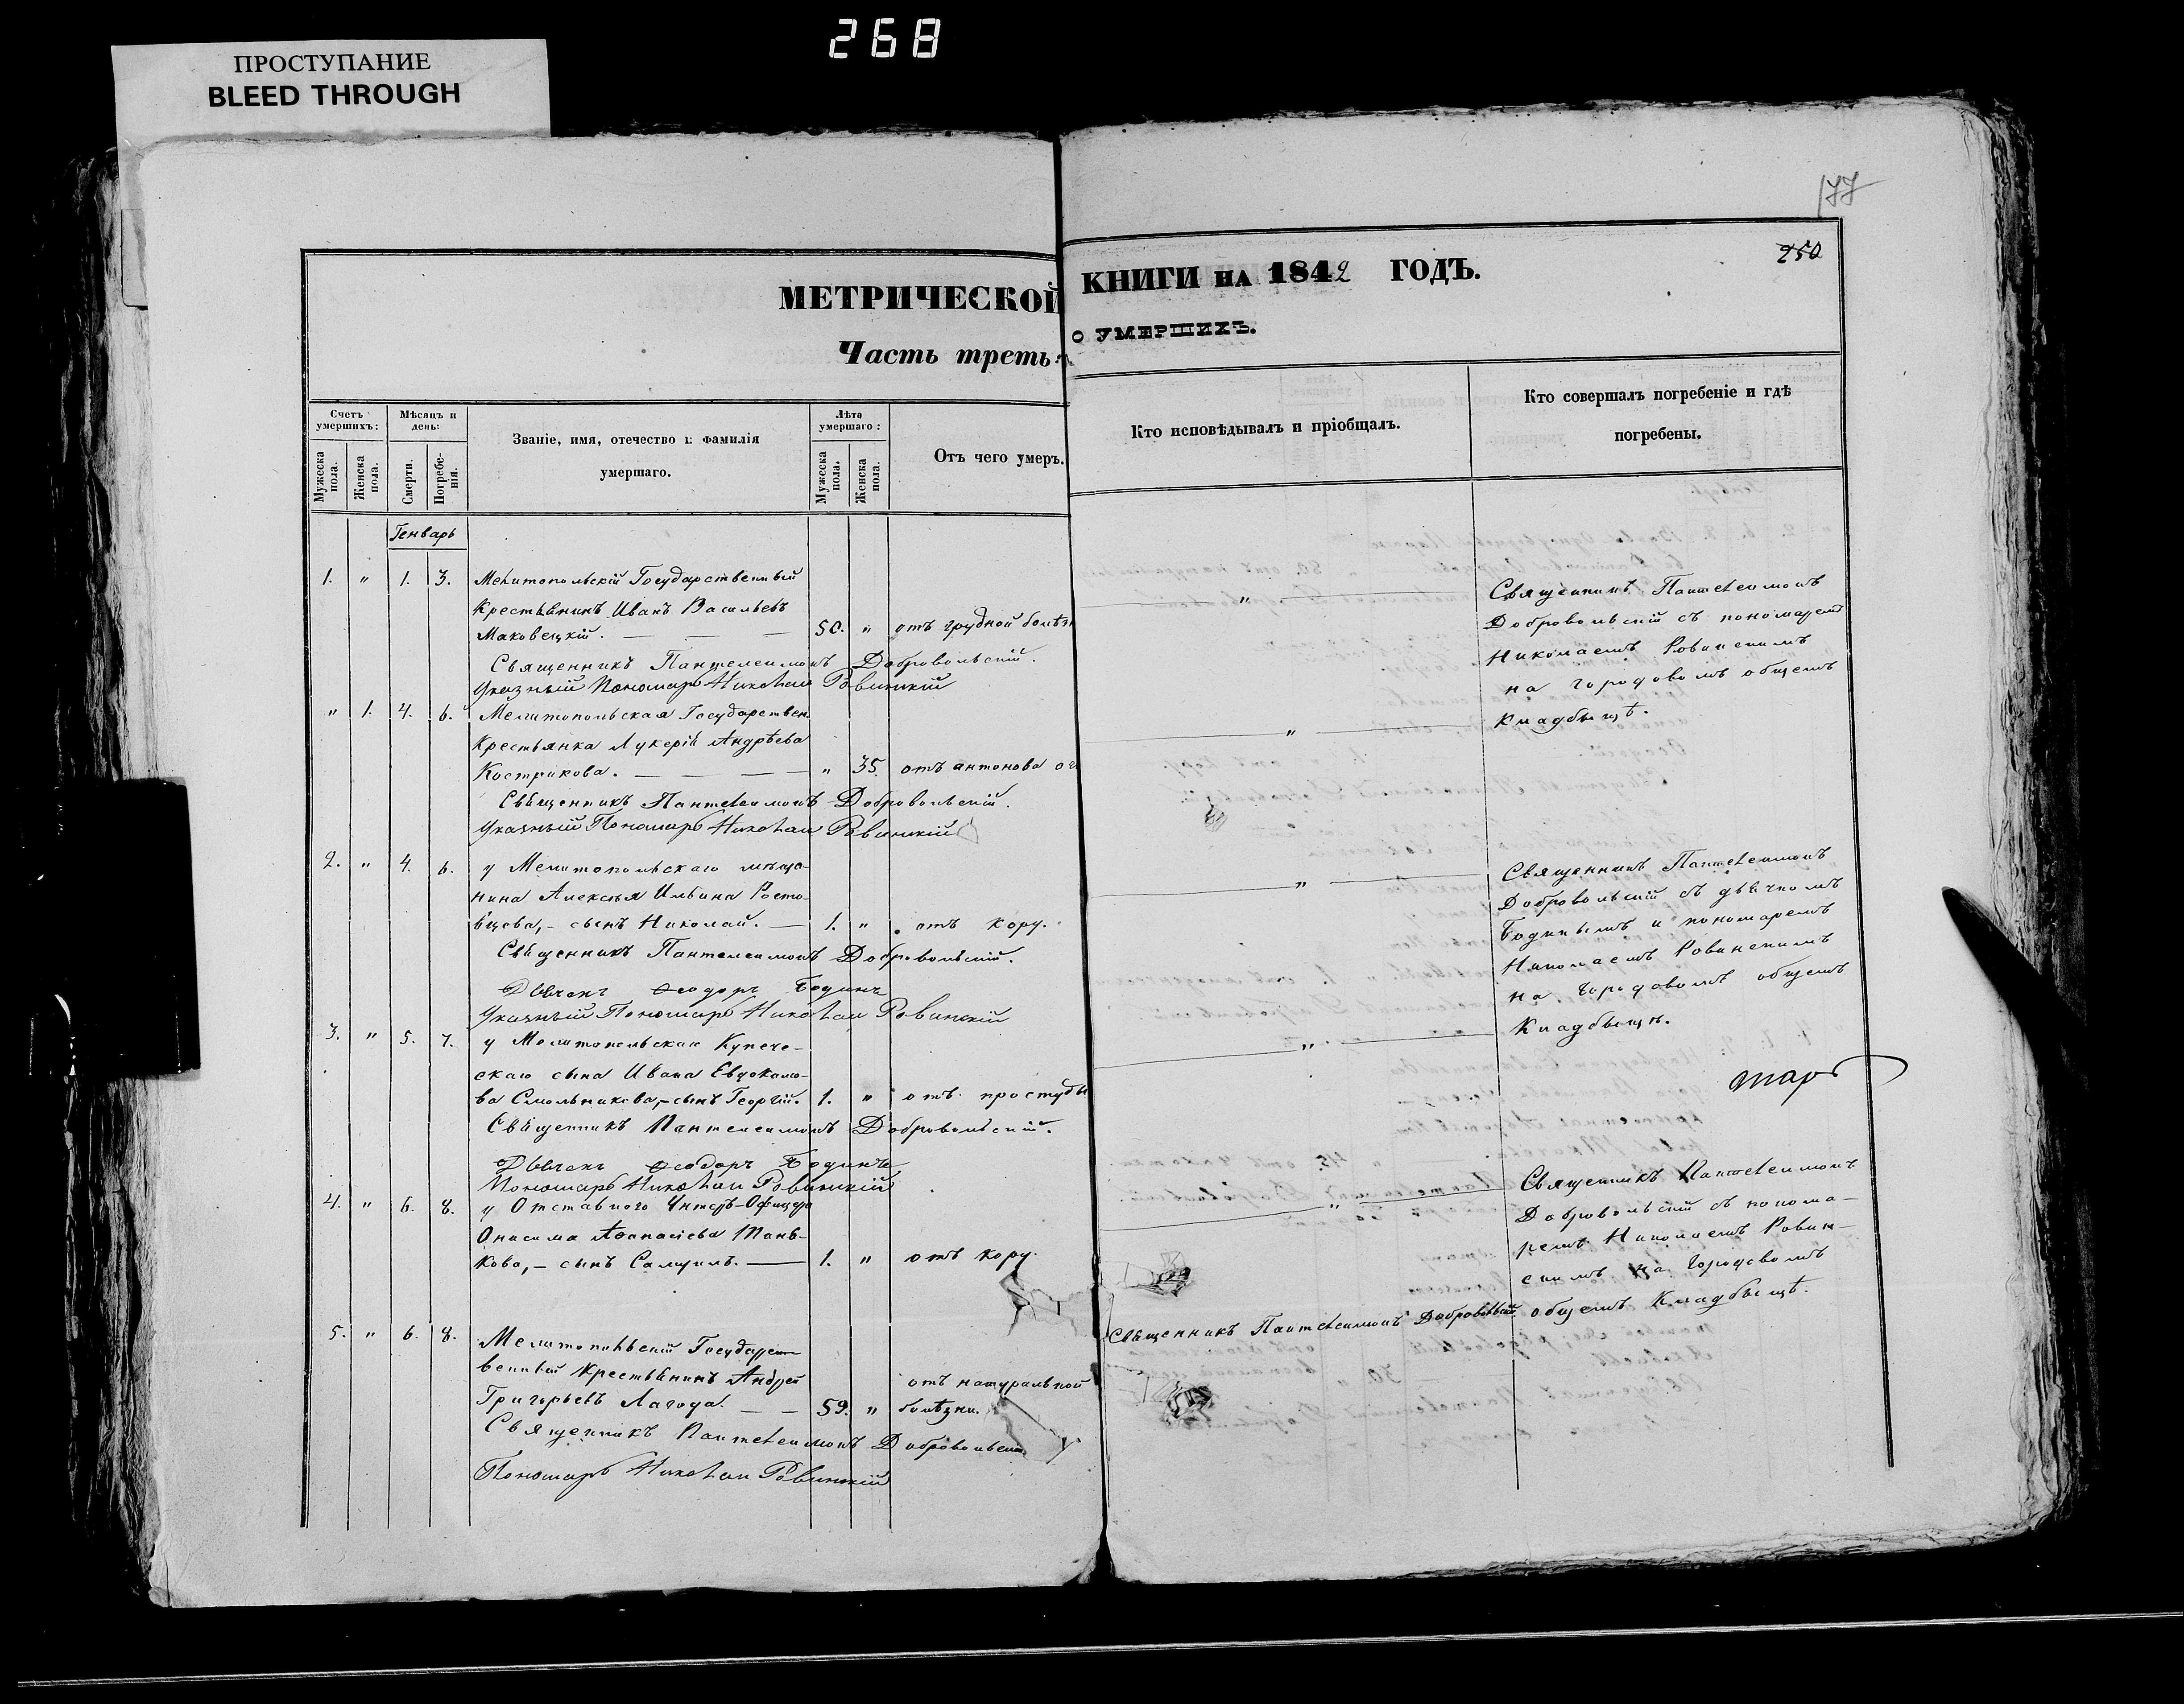 268
ПРОСТУПАНИЕ
BLEED THROUGH
177
250
МЕТРИЧЕСКОЙ КНИГИ НА 1842 ГОДЪ.
Часть треть: о УМЕРШИХЪ.
Счетъ умершихъ:
Мужеска пола.
Женска пола.
Мѣсяцъ и день:
Смерти.
Погребенія.
Званіе, имя, отечество и фамилія
умершаго.
Лѣта умершаго:
Мужеска пола.
Женска пола.
Отъ чего умеръ.
Кто исповѣдывалъ и пріобщалъ.
Кто совершалъ погребеніе и гдѣ
погребены.
Генварь
1. " 1. 3. Мелитопольскій Государственный
Крестьянинъ Иванъ Васильевъ
Маковецкій. — — — 50. " отъ грудной болѣзн
Священникъ Пантелеимонъ Добровольскій.
Указный Пономарь Николай Ровинскій
" 1. 4. 6. Мелитопольская Государствен.
Крестьянка Лукерія Андрѣева
Кострикова. — — — " 35. отъ антонова ог
Священникъ Пантелеимонъ Добровольскій.
Указный Пономарь Николай Ровинскій
2. " 4. 6. у Мелитопольскаго мѣща-
нина Алексѣя Ильина Росто-
вцова, - сынъ Николай. — 1. " отъ кору.
Священникъ Пантелеимонъ Добровольскій.
Дьячекъ Ѳеодоръ Бодинъ
Указный Пономарь Николай Ровинскій
3. " 5. 7. у Мелитопольскаго Купече-
скаго сына Ивана Евдокимо-
ва Смольникова, - сынъ Георгій. 1. " отъ простуды
Священникъ Пантелеимонъ Добровольскій.
Дьячекъ Ѳеодоръ Бодинъ
Пономарь Николай Ровинскій
4. " 6. 8. у Отставнаго Унтеръ-Офицера
Онисима Аѳанасіева Тань-
кова, - сынъ Самуилъ. — 1. " отъ кору.
5. " 6. 8. Мелитопольскій Государст-
венный Крестьянинъ Андрей
Григорьевъ Лагода. — — 59. " отъ натуральной
болѣзни.
Священникъ Пантелеимонъ Добровольскій
Пономарь Николай Ровинскій
" Священникъ Пантелеимонъ
Добровольскій съ пономаремъ
Николаемъ Ровинскимъ
на городовомъ общемъ
" Кладбыщѣ.
" Священникъ Пантелеимонъ
Добровольскій съ дьячкомъ
Бодинымъ и пономаремъ
Николаемъ Ровинскимъ
на городовомъ общемъ
" Кладбыщѣ.
марь
" Священникъ Пантелеимонъ
Добровольскій съ понома-
ремъ Николаемъ Ровин-
скимъ на Городовомъ
общемъ Кладбыщѣ.
Священникъ Пантелеимонъ Добровольскій